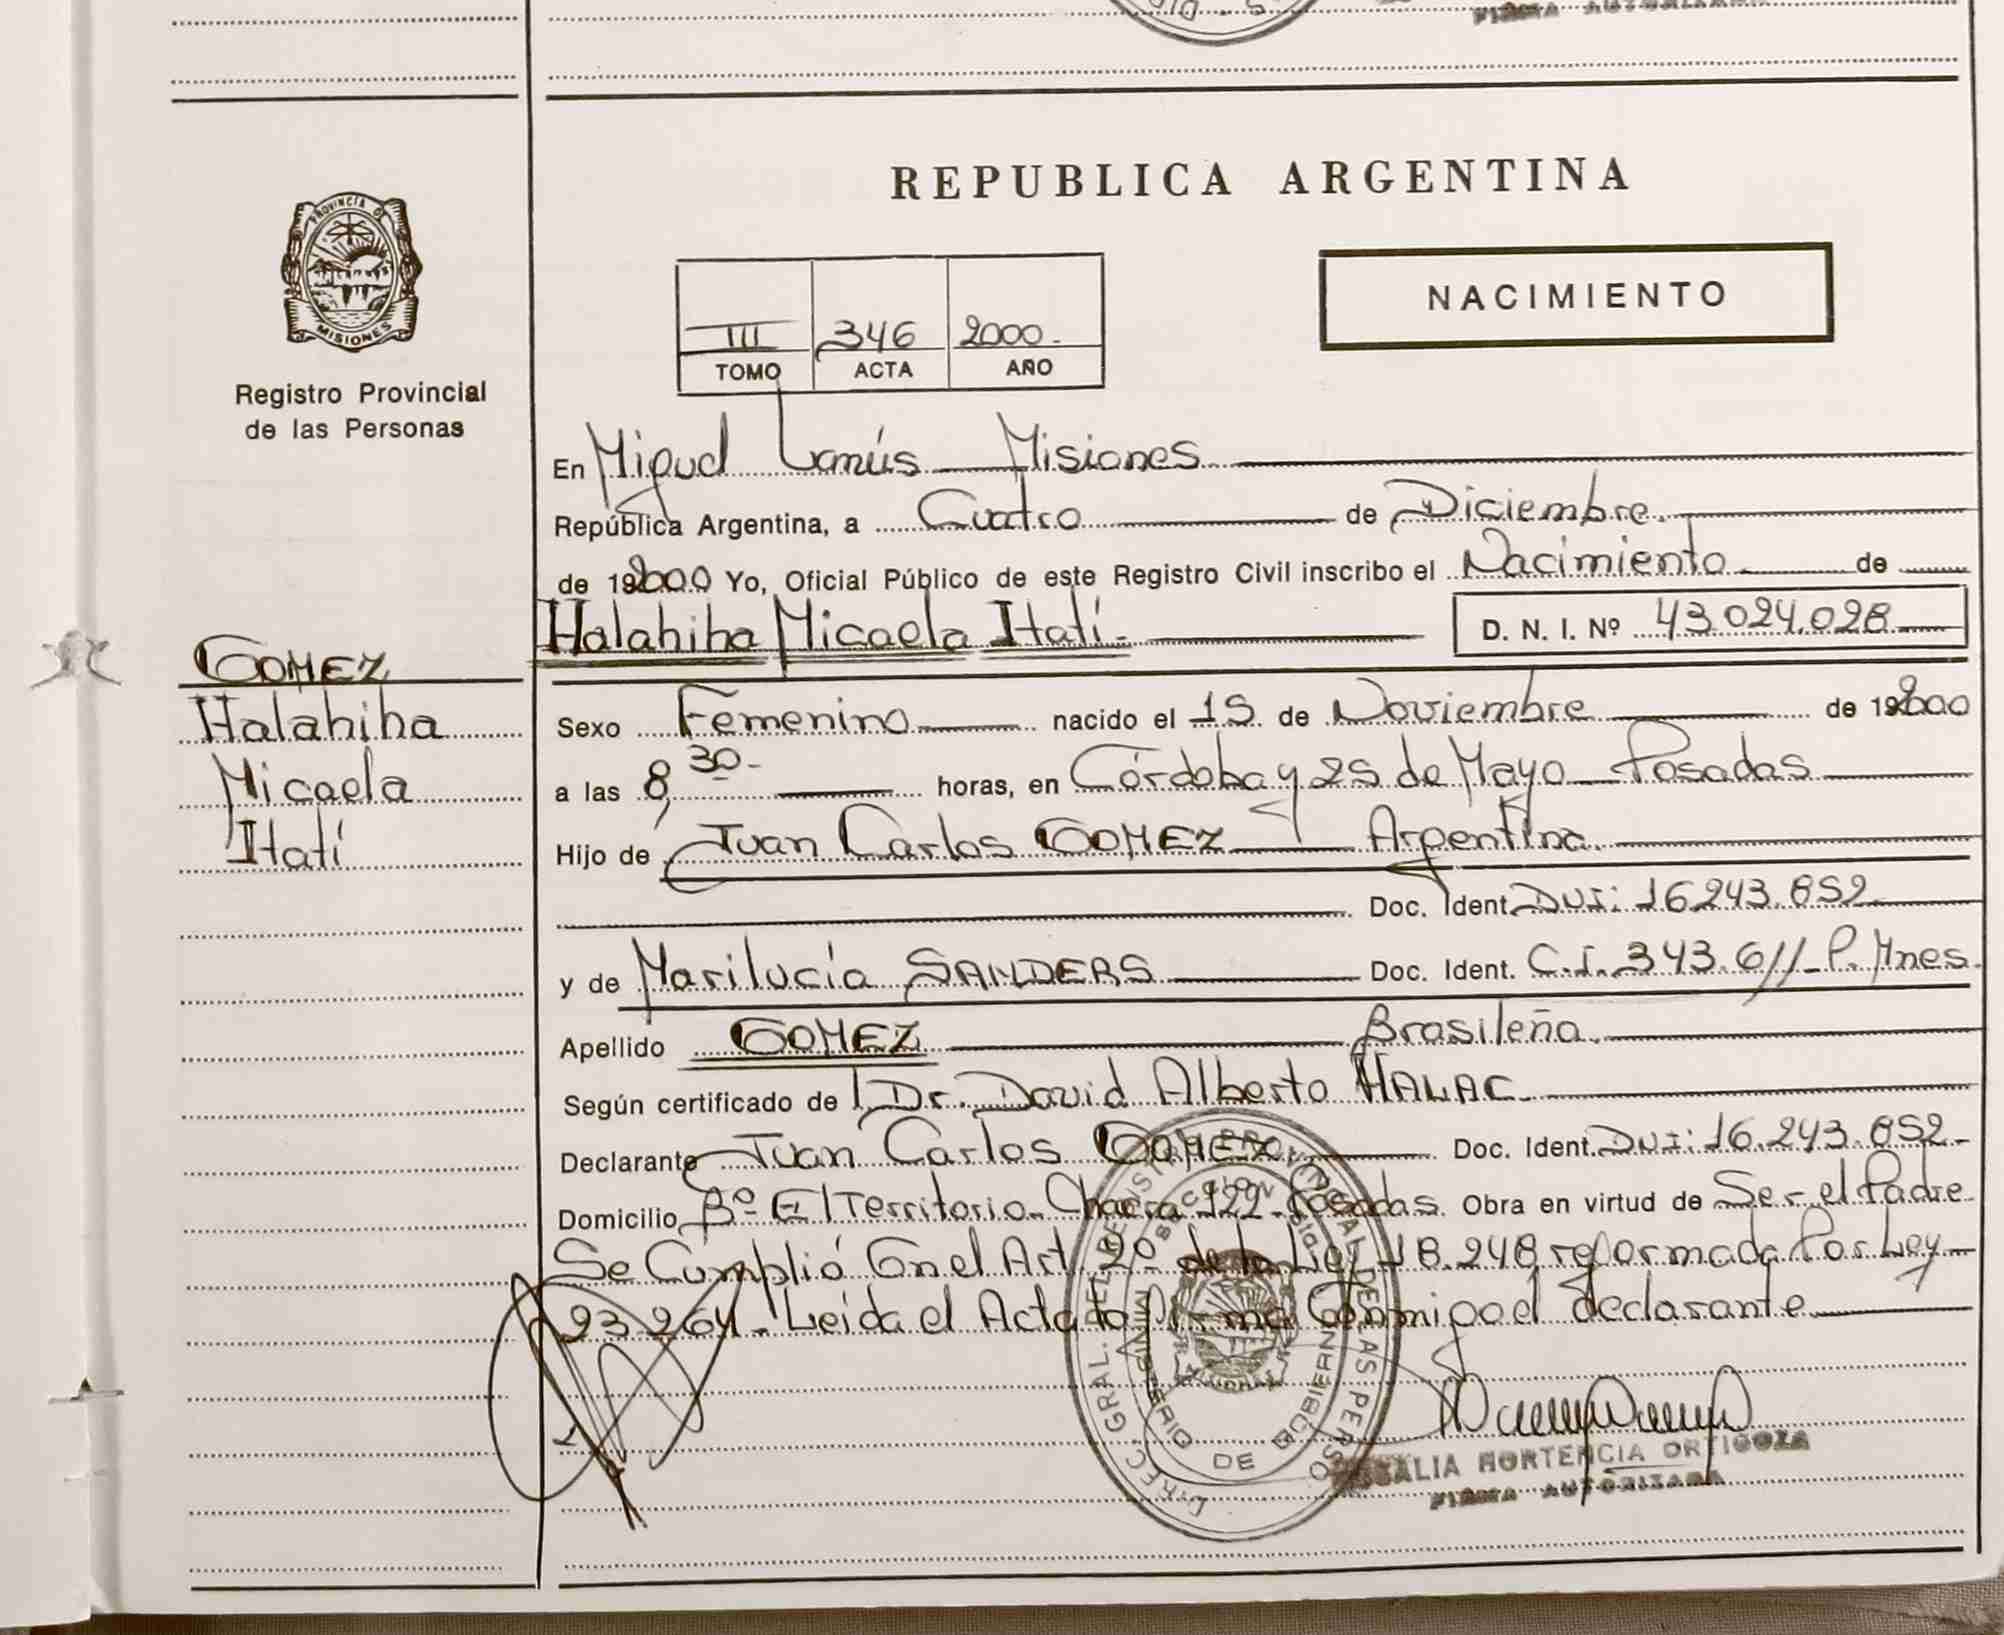 REPUBLICA ARGENTINA
PROVINCIA DE
MISIONES
Registro Provincial
de las Personas
NACIMIENTO
III 346 2000.
TOMO ACTA AÑO
En Miguel Lanús Misiones
República Argentina, a Cuatro de Diciembre.
de 192000 Yo, Oficial Público de este Registro Civil inscribo el Nacimiento de
Halahiha Micaela Itatí.
D. N. I. Nº 43.024.028
GOMEZ
Halahiha
Micaela
Itatí
Sexo Femenino nacido el 15 de Noviembre de 192000
a las 8,30 horas, en Córdoba y 25 de Mayo Posadas
Hijo de Juan Carlos GOMEZ Argentina.
Doc. Ident. DNI: 16.243.852
y de Marilucía SANDERS Doc. Ident. C.I. 343.611 P. Mnes.
Apellido GOMEZ Brasileña.
Según certificado de Dr. David Alberto HALAC
Declarante Juan Carlos GOMEZ Doc. Ident. DNI: 16.243.852
Domicilio Bº El Territorio Chacra 122 Posadas. Obra en virtud de Ser el Padre
Se Cumplió Con el Art. 2º de la Ley 18.248 reformada Por Ley
23.264. Leída el Acta la Firma Conmigo el declarante
DIREC. GRAL. DEL REGISTRO PROVINCIAL DE LAS PERSO
MINISTERIO DE GOBIERN
HORTENCIA ORTIGOZA
FIRMA AUTORIZADA